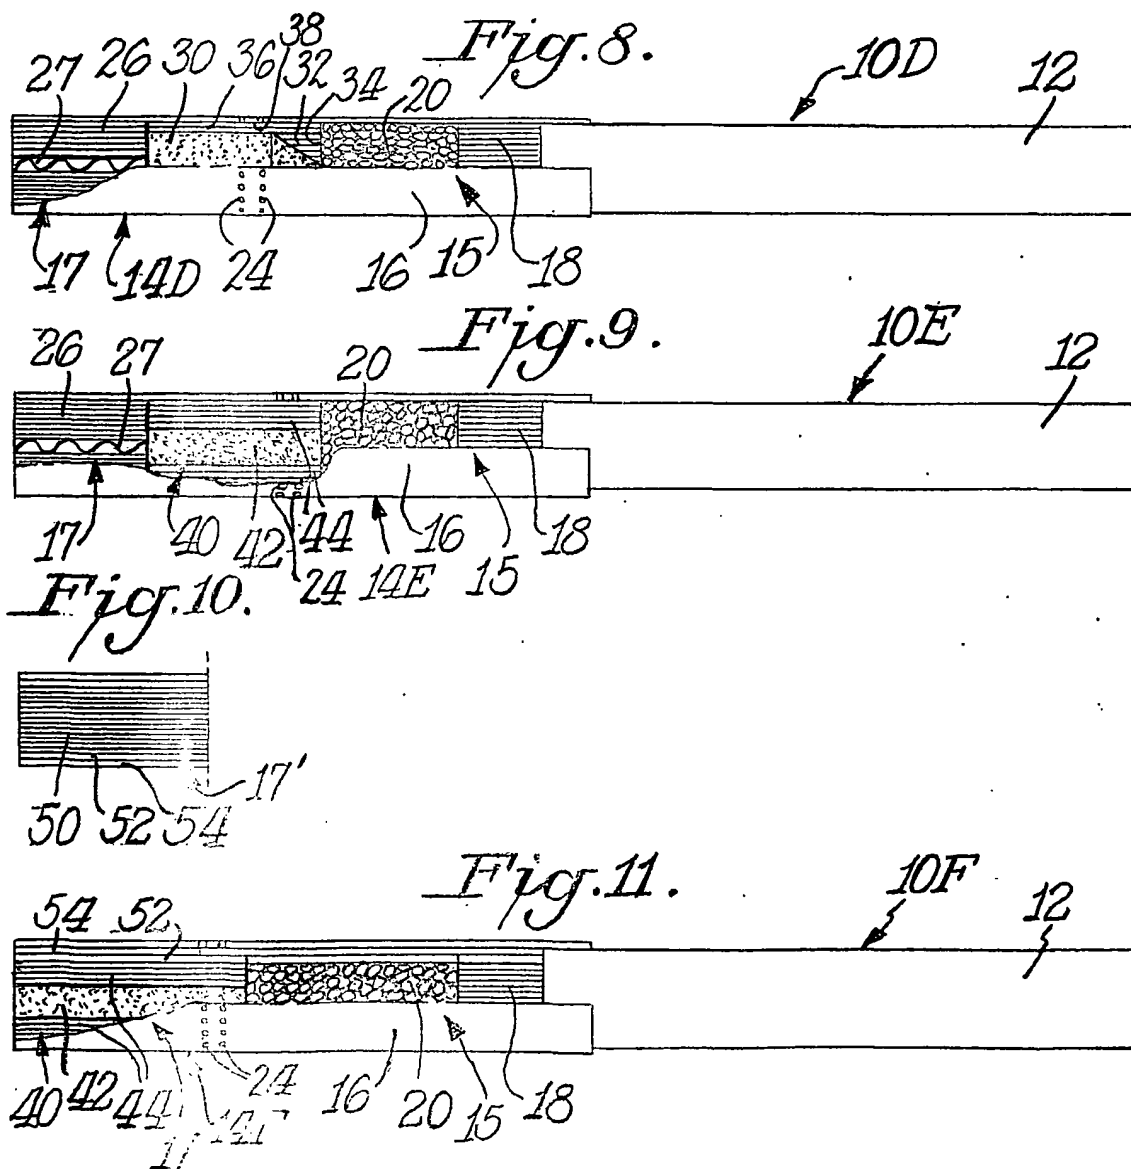 Fig. 8.
38
27 26 30 36 32 34 20 10D 12
17 14D 24 16 15 18
Fig. 9.
26 27 20 10E 12
17 40 42 44 16 18
24 14E 15
Fig. 10.
17'
50 52 54
Fig. 11.
54 52 10F 12
40 42 44 24 16 20 15 18
14F